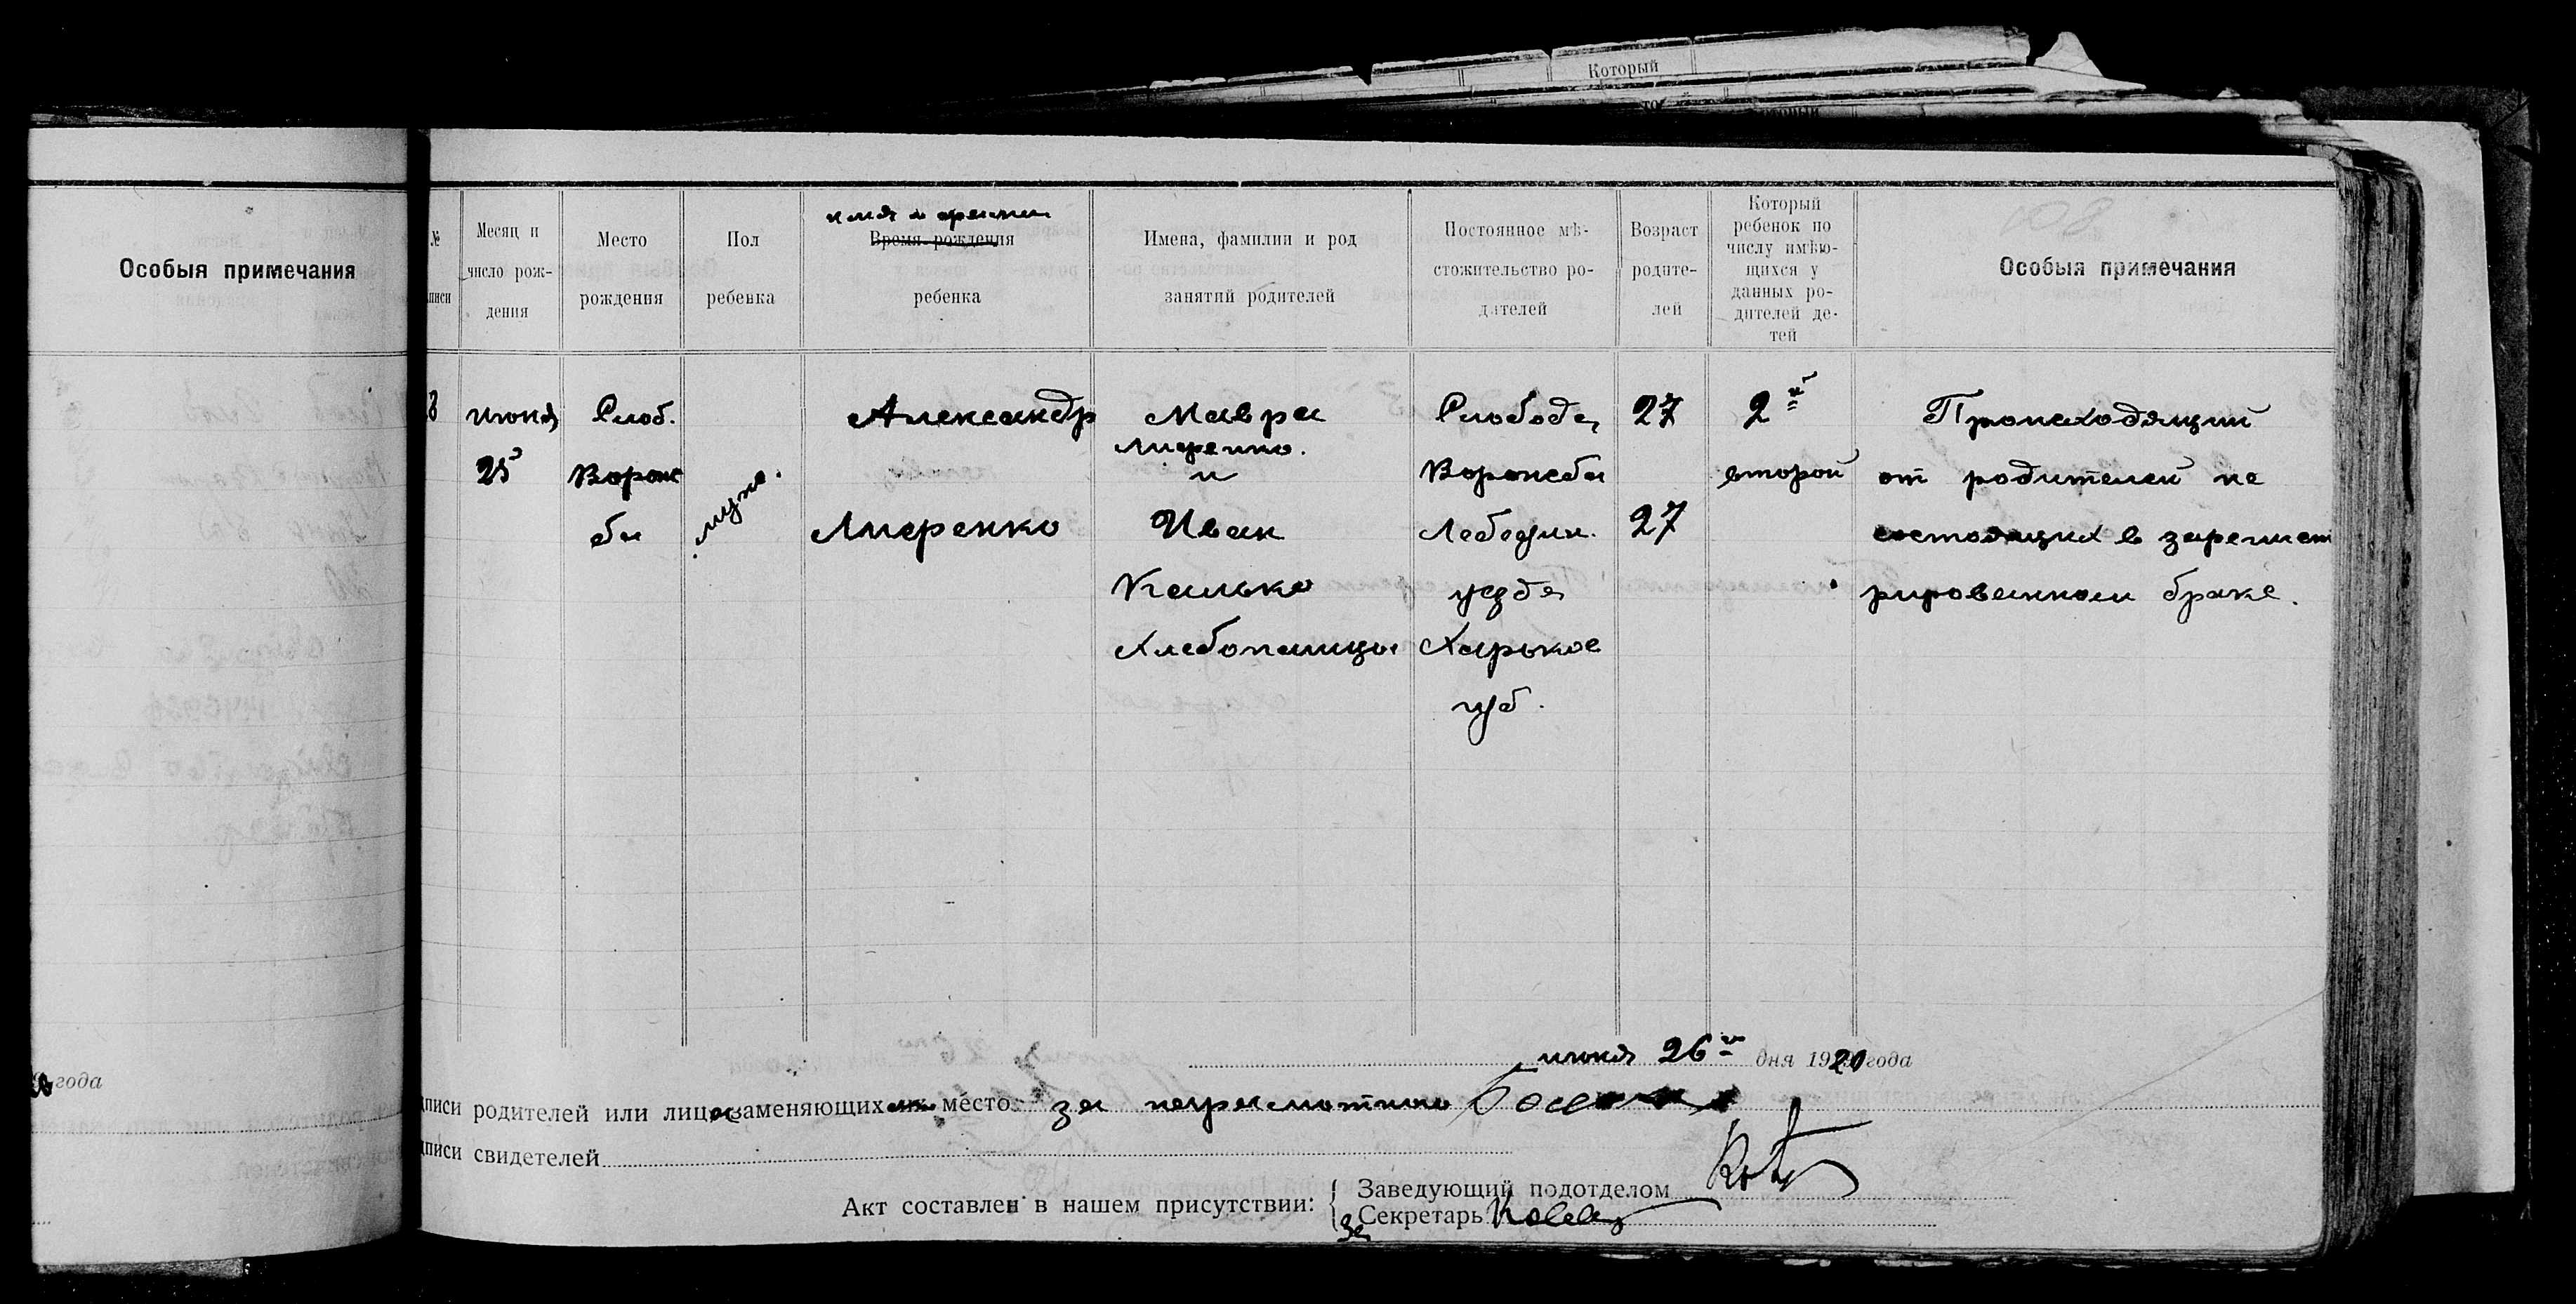 Который
Особыя примечания
года
имя и фамилия
№
Месяц и
число рож-
дения
Место
рождения
Пол
ребенка
Время рождения
ребенка
Имена, фамилии и род
занятий родителей
Постоянное мѣ-
стожительство ро-
дителей
Возраст
родите-
лей
Который
ребенок по
числу имѣю-
щихся у
данных ро-
дителей де-
тей
Особыя примечания
июня
25
Слоб.
Ворож
бы
муж.
Александр
Лифенко
Мавра
Лифенко.
и
Иван
Калько
Хлебопашцы
Слобода
Ворожба
Лебедин.
уезда
Харьков
губ.
27
27
2й
второй
Происходящий
от родителей не
состоящих в зарегист
рированном браке.
июня 26го дня 1920 года
родителей или лица заменяющих место за неграмотного
свидетелей
Акт составлен в нашем присутствии:
Заведующий подотделом
За Секретарь